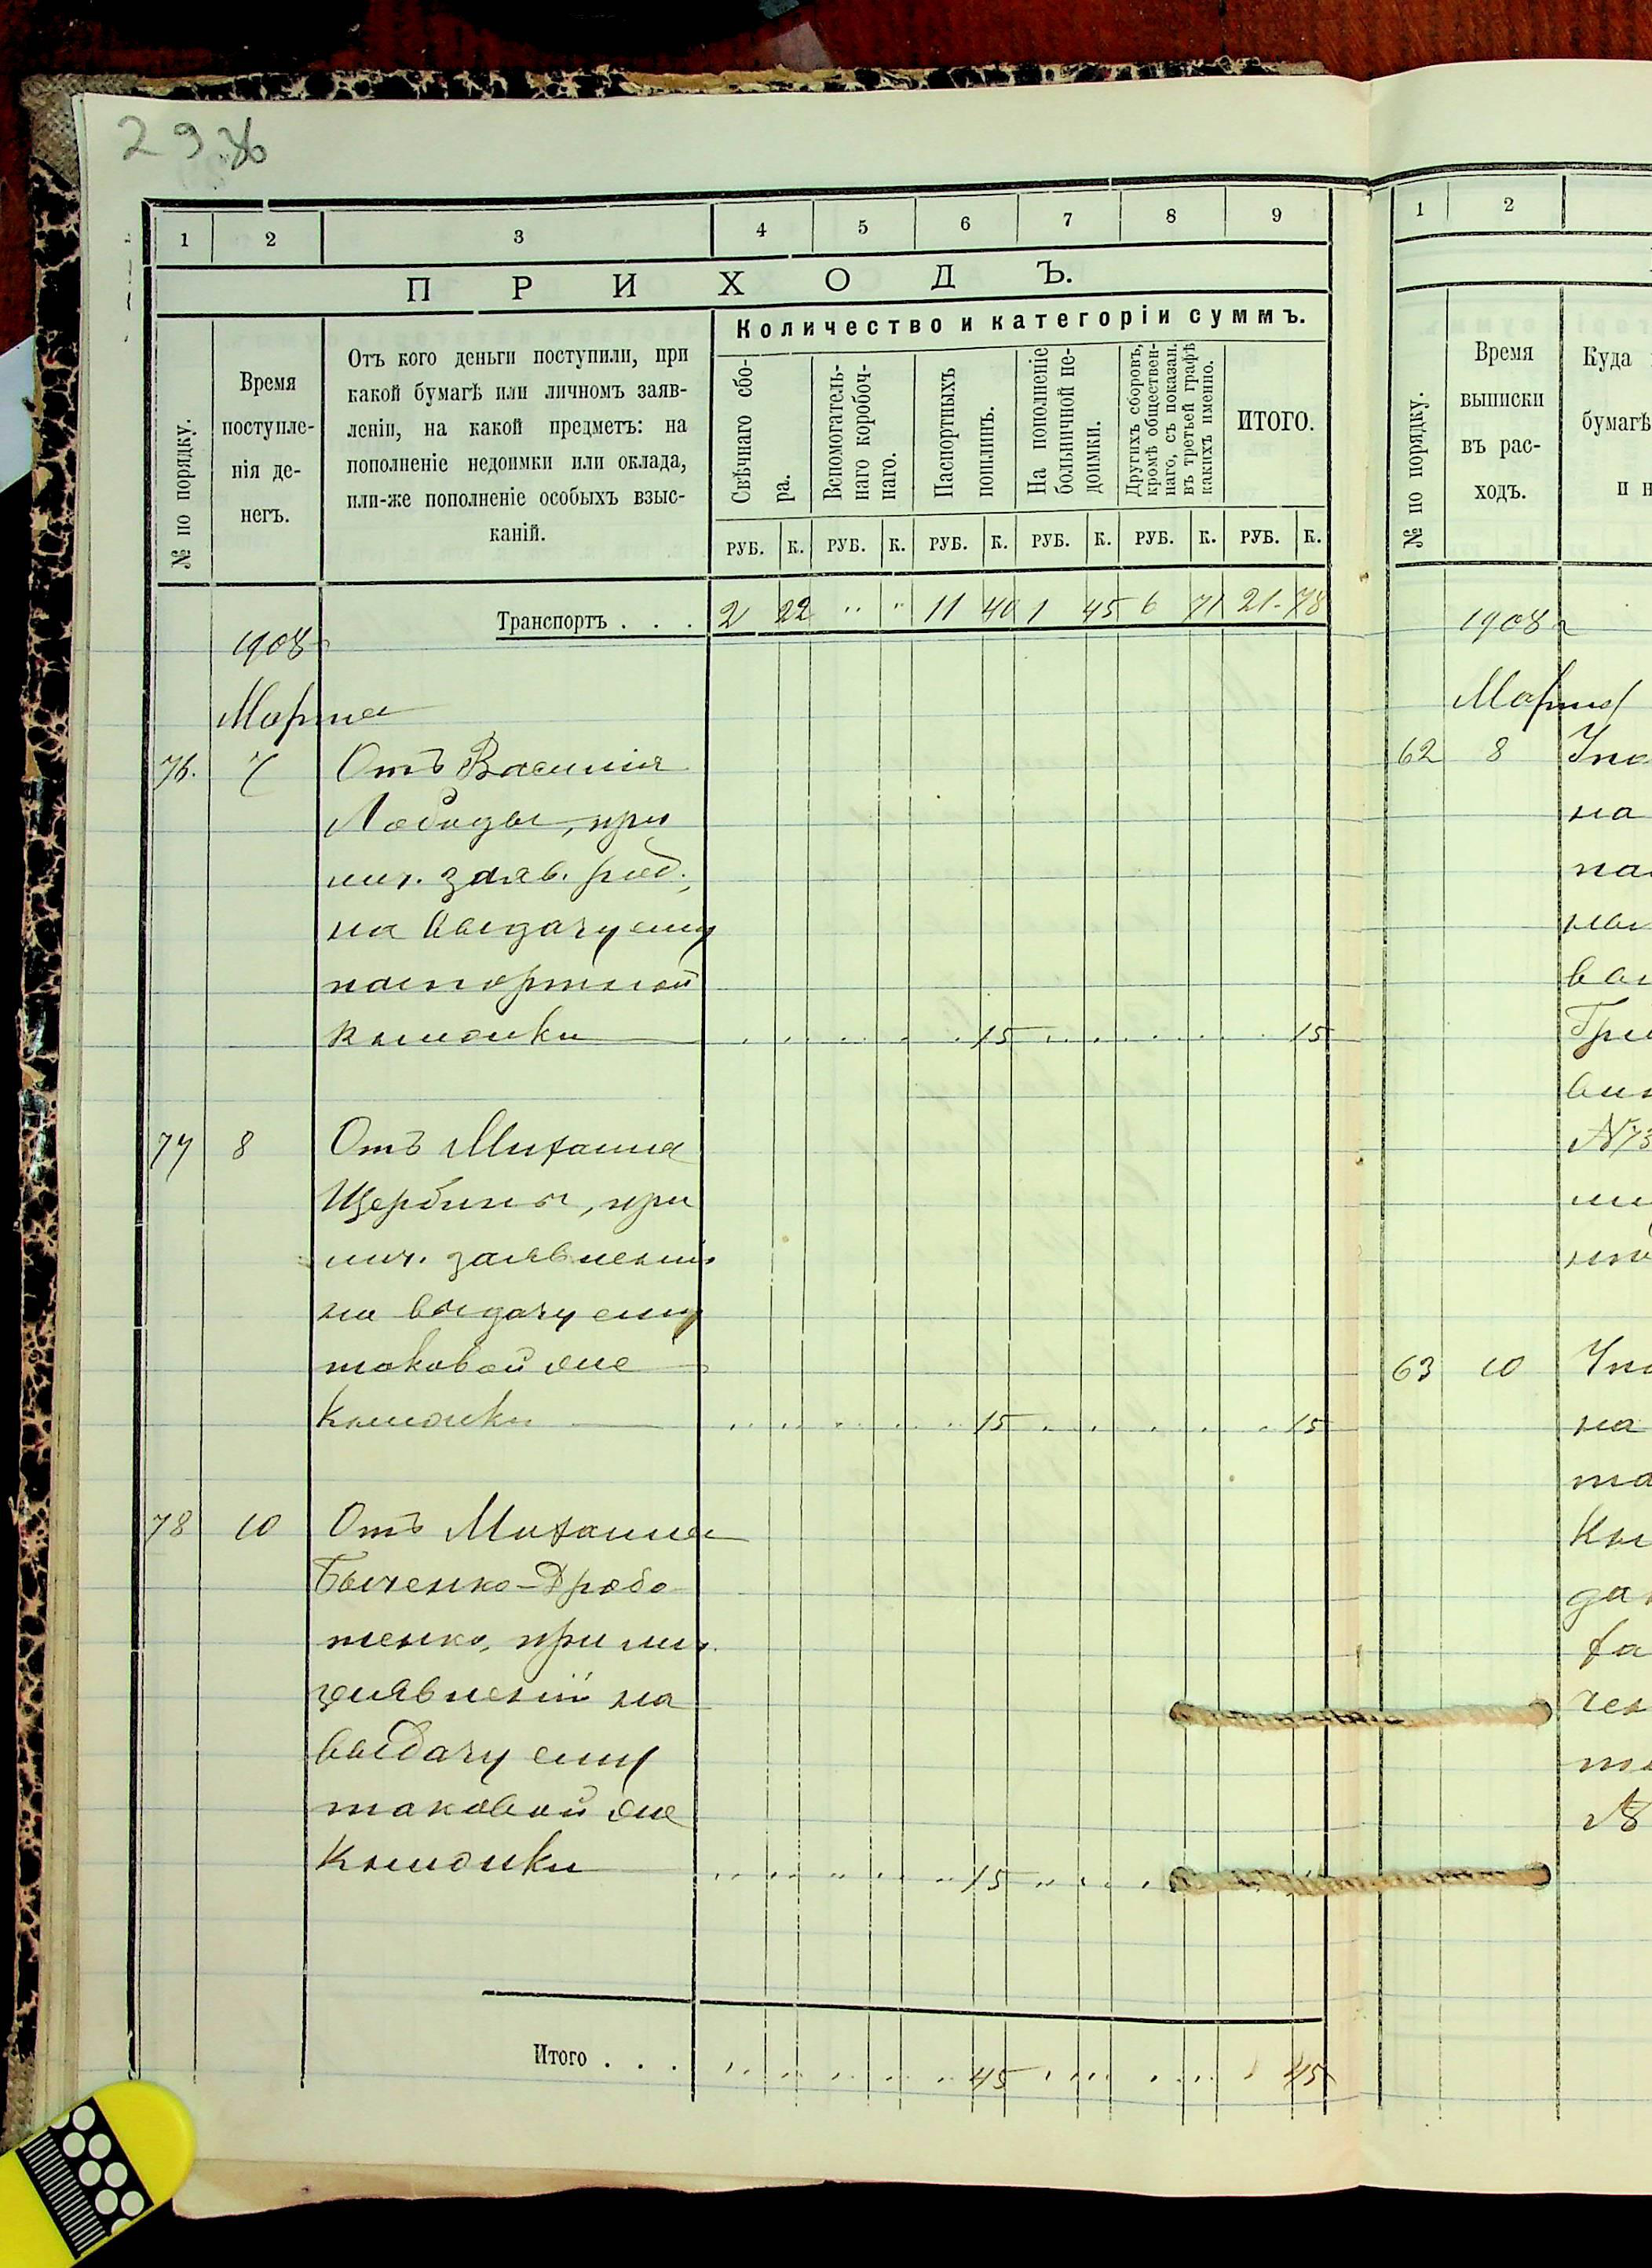 29
1 2 3 4 5 6 7 8 9
ПРИХОДЪ.
№ по порядку.
Время
поступле-
нія де-
негъ.
Отъ кого деньги поступили, при
какой бумагѣ или личномъ заяв-
леніи, на какой предметъ: на
пополненіе недоимки или оклада,
или-же пополненіе особыхъ взыс-
каній.
Количество и категоріи суммъ.
Свѣчнаго сбо-
ра.
Вспомогатель-
наго коробоч-
наго.
Паспортныхъ
пошлинъ.
На пополненіе
больничной не-
доимки.
Другихъ сборовъ,
кромѣ обществен-
наго, съ показан.
въ третьей графѣ
какихъ именно.
ИТОГО.
РУБ. К. РУБ. К. РУБ. К. РУБ. К. РУБ. К. РУБ. К.
Транспортъ . . . 2 22 " " 11 40 1 45 6 71 21 - 78
1908 г
Марта
76. 7 Отъ Василія
Лободы, при
лич. заяв.
на выдачу ему
паспортной
книжки 15 15
77 8 Отъ Михаила
Щербины, при
лич. заявленіи
на выдачу ему
таковой же
книжки 15 15
78 10 Отъ Михаила
Быченко-Дробо
тенко, при лич.
заявленіи на
выдачу ему
таковой же
книжки 15
Итого . . . 45 45
1 2
№ по порядку.
Время
выписки
въ рас-
ходъ.
Куда
бумагѣ
и н
1908 г
Марта
62 8
на
63 10
на